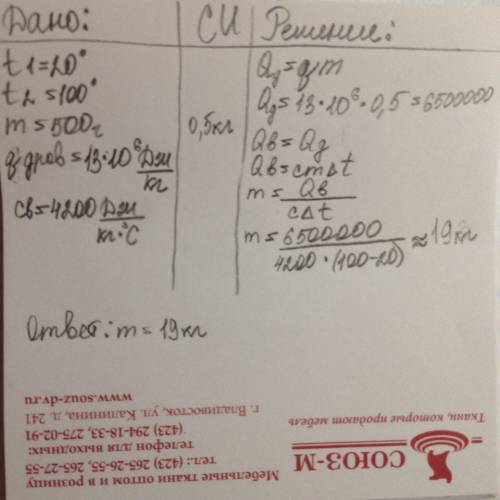 Дано:
СИ
Решение:
t1=20°
t2=100°
m=500г
q дров=13*10⁶ Дж/кг
cв=4200 Дж/кг·°С
0,5кг
Qд=qm
Qд=13*10⁶*0,5=6500000
Qв=Qд
Qв=cm∆t
m=Qв/c∆t
m=6500000/4200*(100-20)≈19кг
Ответ: m=19кг
Ткани, которые продают мебель
СОЮЗ-М
Мебельные ткани оптом и в розницу
тел.: (423) 265-26-55, 265-27-55
телефон для выходных:
(423) 294-18-33, 275-02-91
г. Владивосток, ул. Калинина, д. 241
www.souz-dv.ru